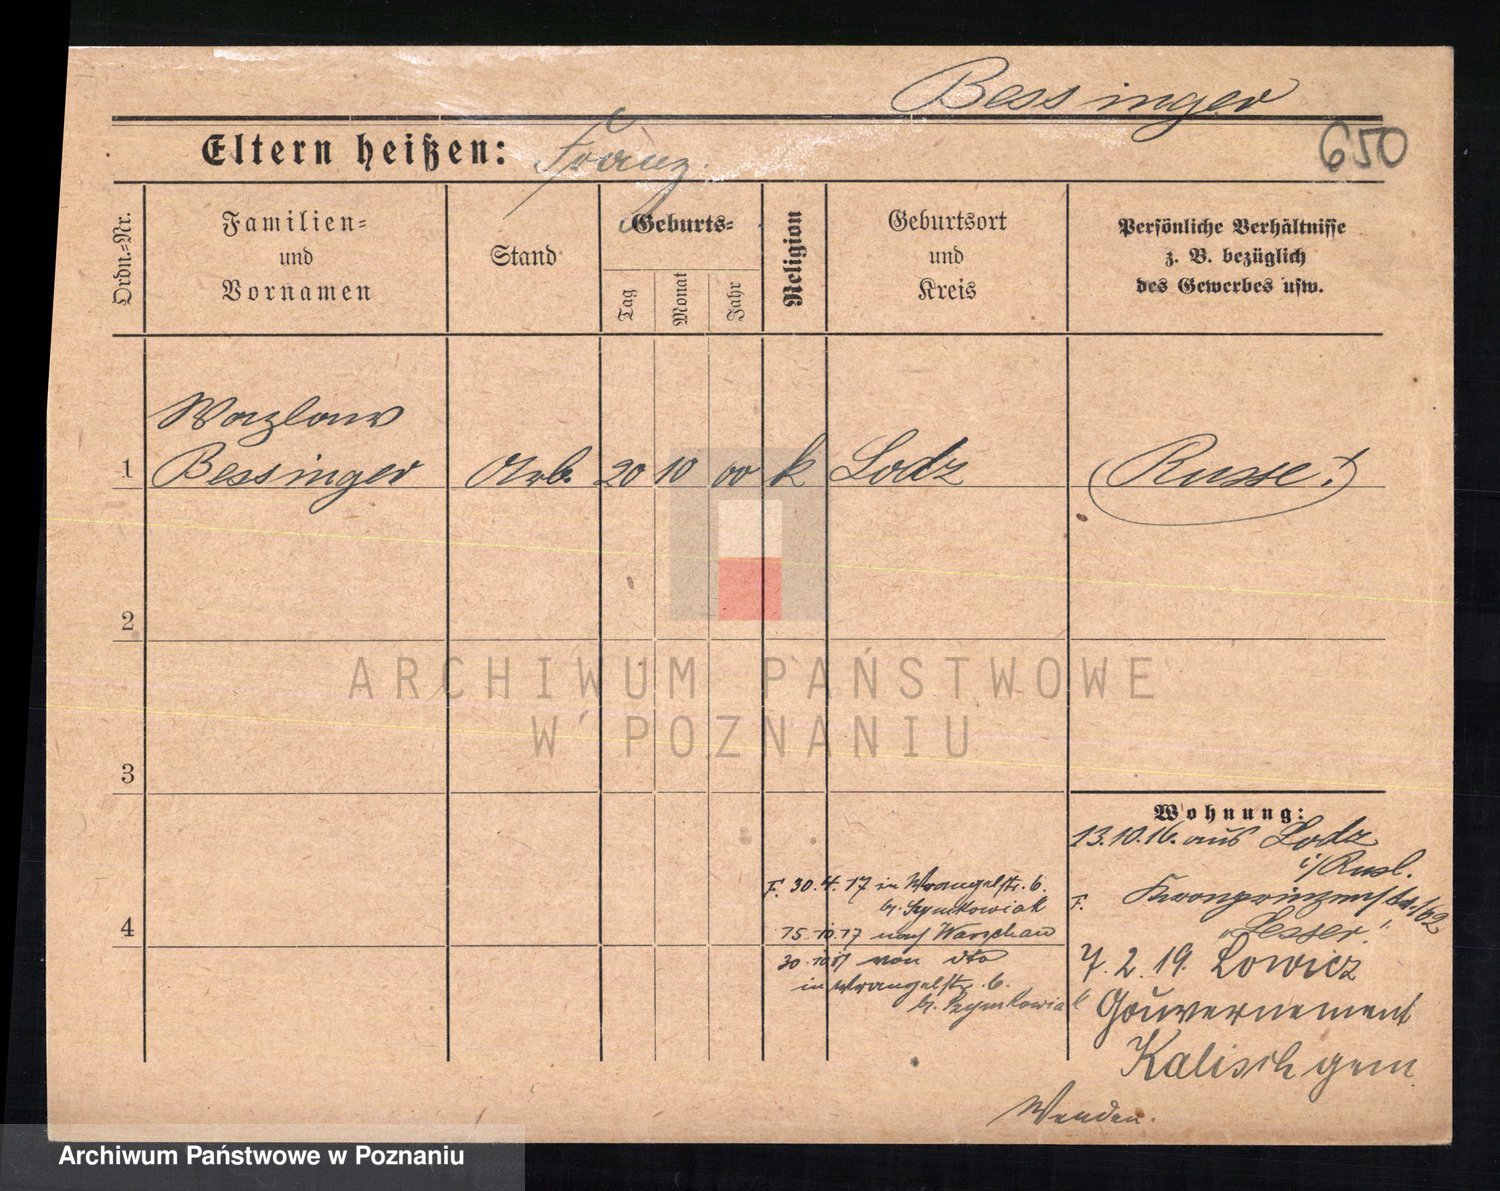 Bessinger
650
Eltern heißen: Franz.
Ordn.=Nr.
Familien=
und
Vornamen
Stand
Geburts=
Tag
Monat
Jahr
Religion
Geburtsort
und
Kreis
Persönliche Verhältnisse
z. B. bezüglich
des Gewerbes usw.
Wazlaw
1 Bessinger Arb. 20 10 00 k Lodz (Russe!)
2
ARCHIWUM PAŃSTWOWE
W POZNANIU
3
4
Wohnung:
13.10.16. aus Lodz
i/Rusl.
F. Kronprinzenstr. /62
"Lesser."
F. 30.4.17 in Wrangelstr. 6.
b. Szymkowiak
15.10.17 nach Warschau
30.10.17 von dto
in Wrangelstr. 6.
b. Szymkowiak
7.2.19. Lowicz
Gouvernement
Kalisch gem.
Wenden.
Archiwum Państwowe w Poznaniu